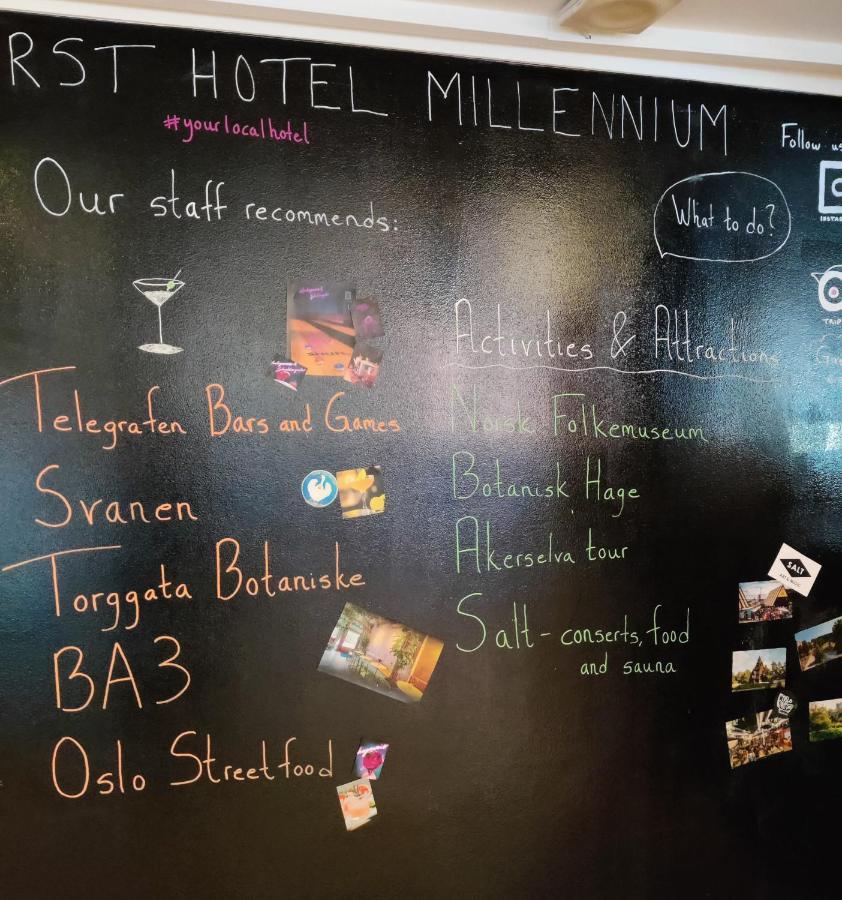 RST HOTEL MILLENNIUM
#yourlocalhotel
Follow us
Our staff recommends:
What to do?
Activities & Attractions
Telegrafen Bars and Games
Svanen
Torggata Botaniske
BA3
Oslo Streetfood
Norsk Folkemuseum
Botanisk Hage
Akerselva tour
Salt - conserts, food
and sauna
SALT
ART & MUSIC